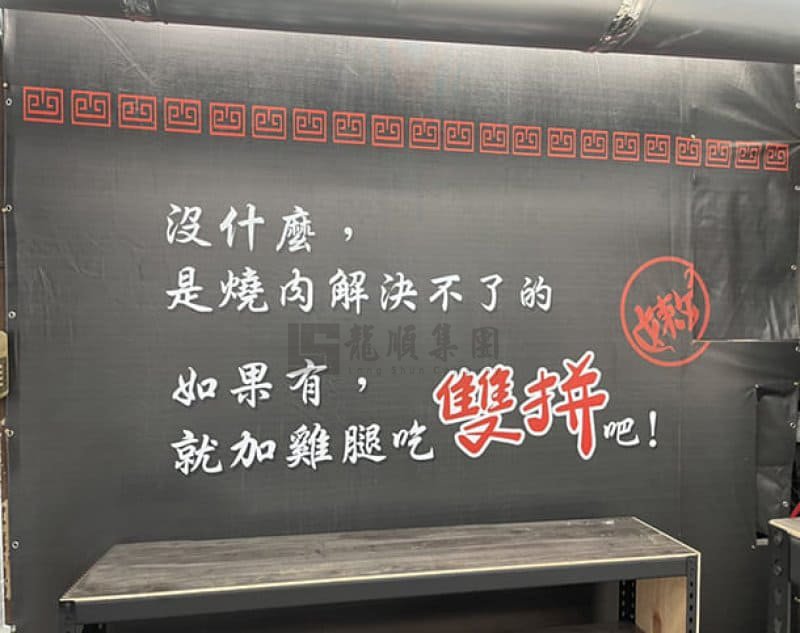 沒什麼，
是燒肉解決不了的
龍順集團
如果有，
就加雞腿吃雙拼吧！